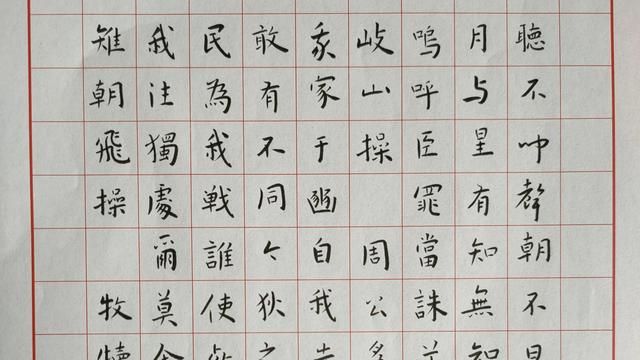 聽不聞聲朝不日
月与星有知無知
嗚呼臣罪當誅兮
岐山操 周公為
我家于豳自我先
敢有不同今狄之
民為我戰誰使死
我往獨處爾莫余
雉朝飛操 牧犢